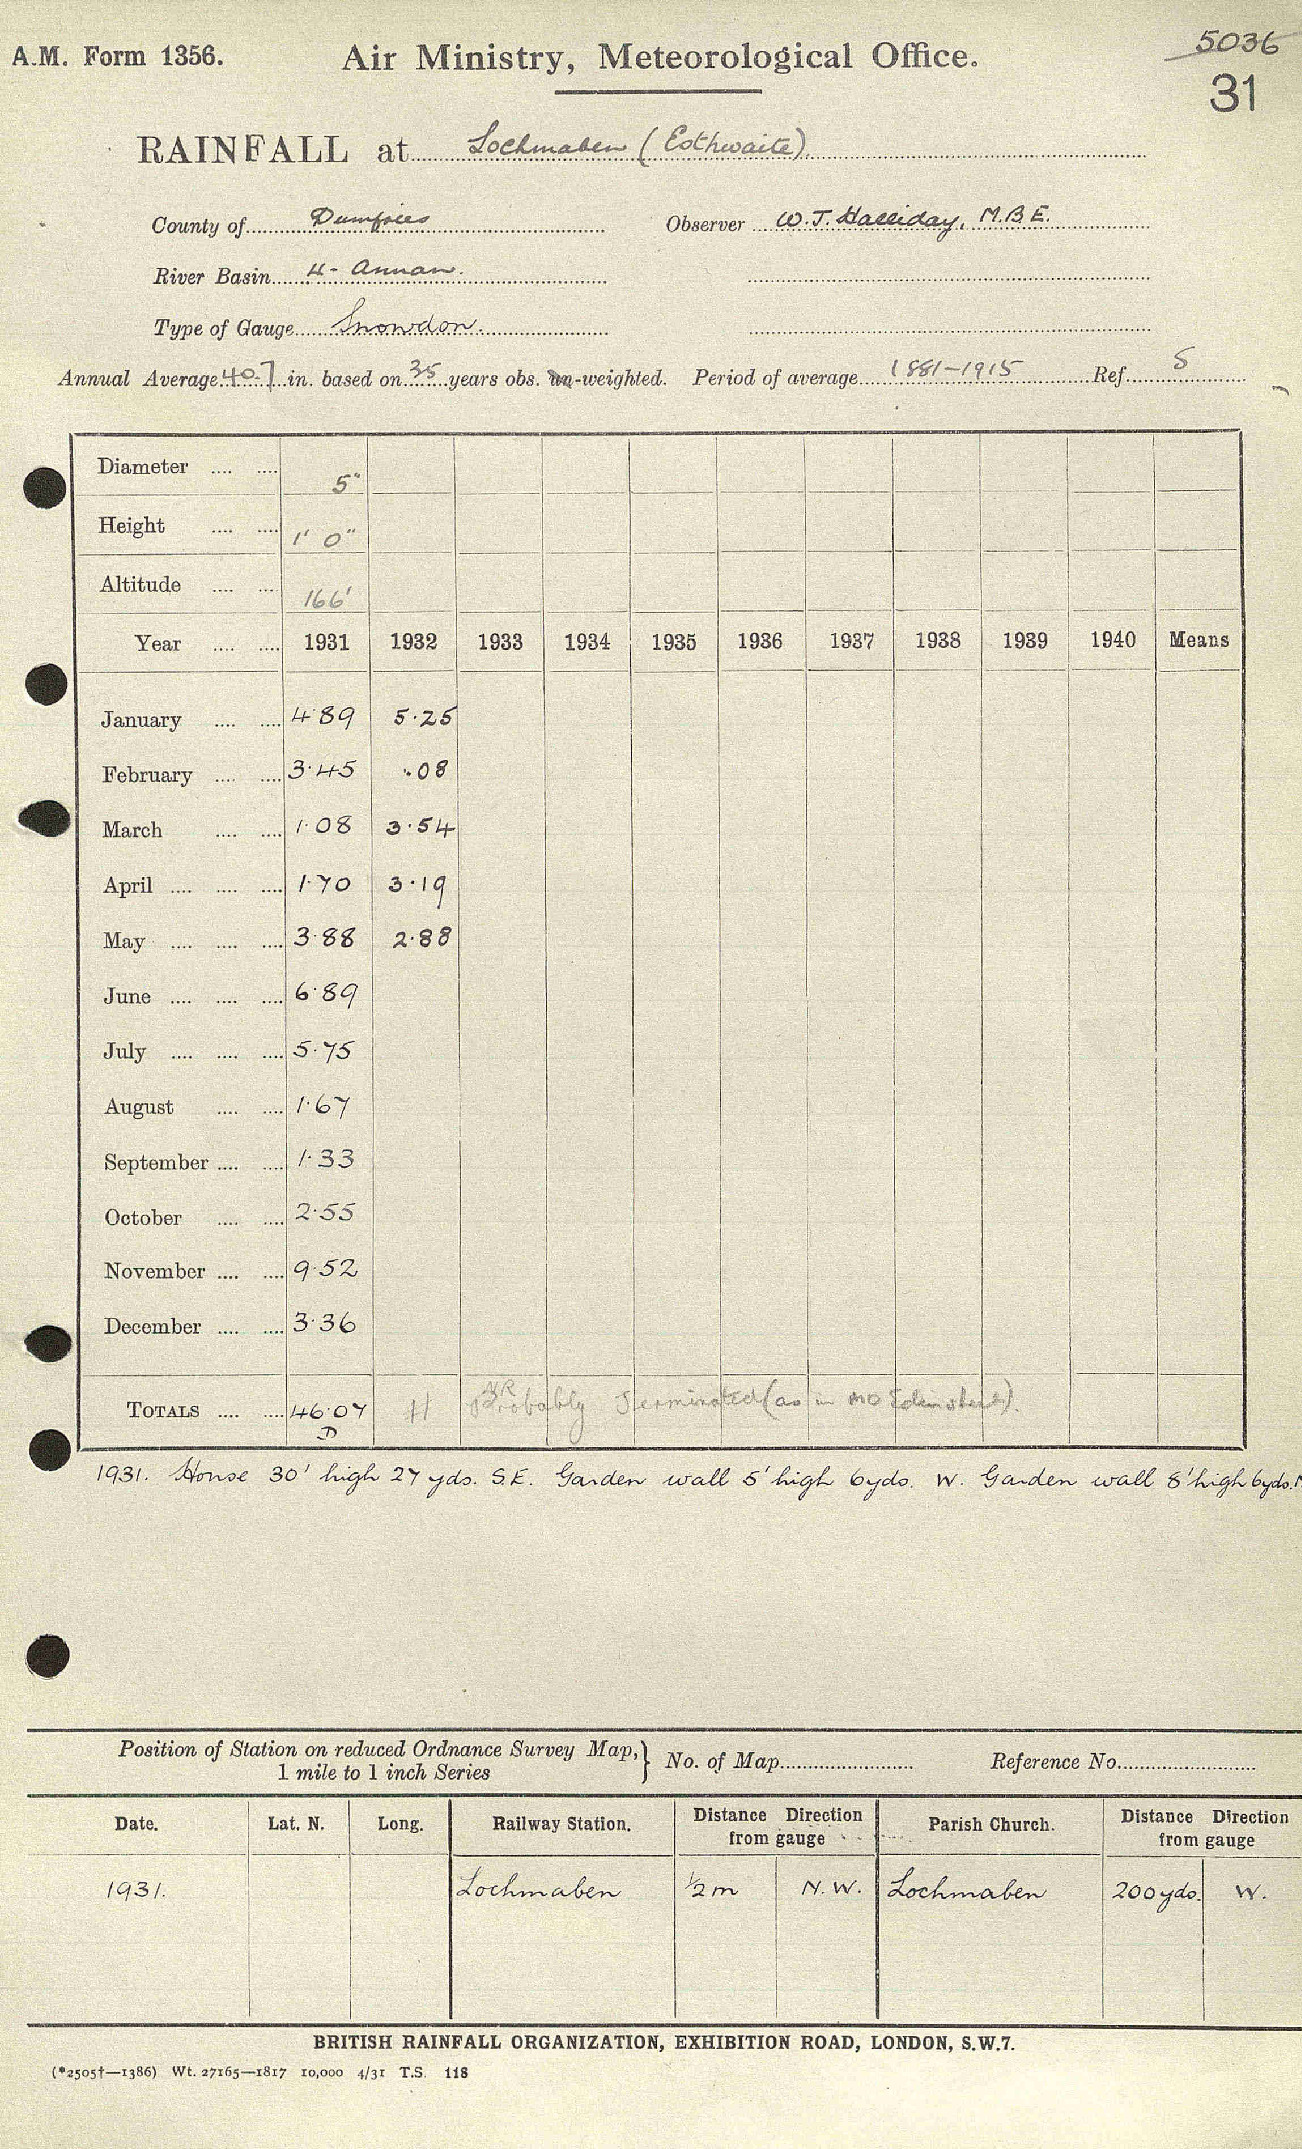 5036
A.M. Form 1356. Air Ministry, Meteorological Office.
31
RAINFALL at Lochmaben (Esthwaite).
County of Dumfries Observer W. J. Halliday, M.B.E.
River Basin 4- Annan.
Type of Gauge Snowdon.
Annual Average 40.7 in. based on 35 years obs. un-weighted. Period of average 1881-1915 Ref. S
Diameter .... .... 5"
Height .... .... 1' 0"
Altitude .... .... 166'
Year .... .... 1931 1932 1933 1934 1935 1936 1937 1938 1939 1940 Means
January .... .... 4.89 5.25
February .... .... 3.45 .08
March .... .... 1.08 3.54
April .... .... .... 1.70 3.19
May .... .... .... 3.88 2.88
June .... .... .... 6.89
July .... .... .... 5.75
August .... .... 1.67
September .... .... 1.33
October .... .... 2.55
November .... .... 9.52
December .... .... 3.36
TOTALS .... .... 46.07 Probably Terminated (as in MO Edinburgh).
D
1931. House 30' high 27 yds. S.E. Garden wall 5' high 6yds. W. Garden wall 8' high 6yds. N
Position of Station on reduced Ordnance Survey Map, } No. of Map Reference No.
1 mile to 1 inch Series
Date. Lat. N. Long. Railway Station. Distance Direction from gauge Parish Church. Distance Direction from gauge
1931. Lochmaben ½m N.W. Lochmaben 200yds. W.
BRITISH RAINFALL ORGANIZATION, EXHIBITION ROAD, LONDON, S.W.7.
(*2505†—1386) Wt. 27165—1817 10,000 4/31 T.S. 118